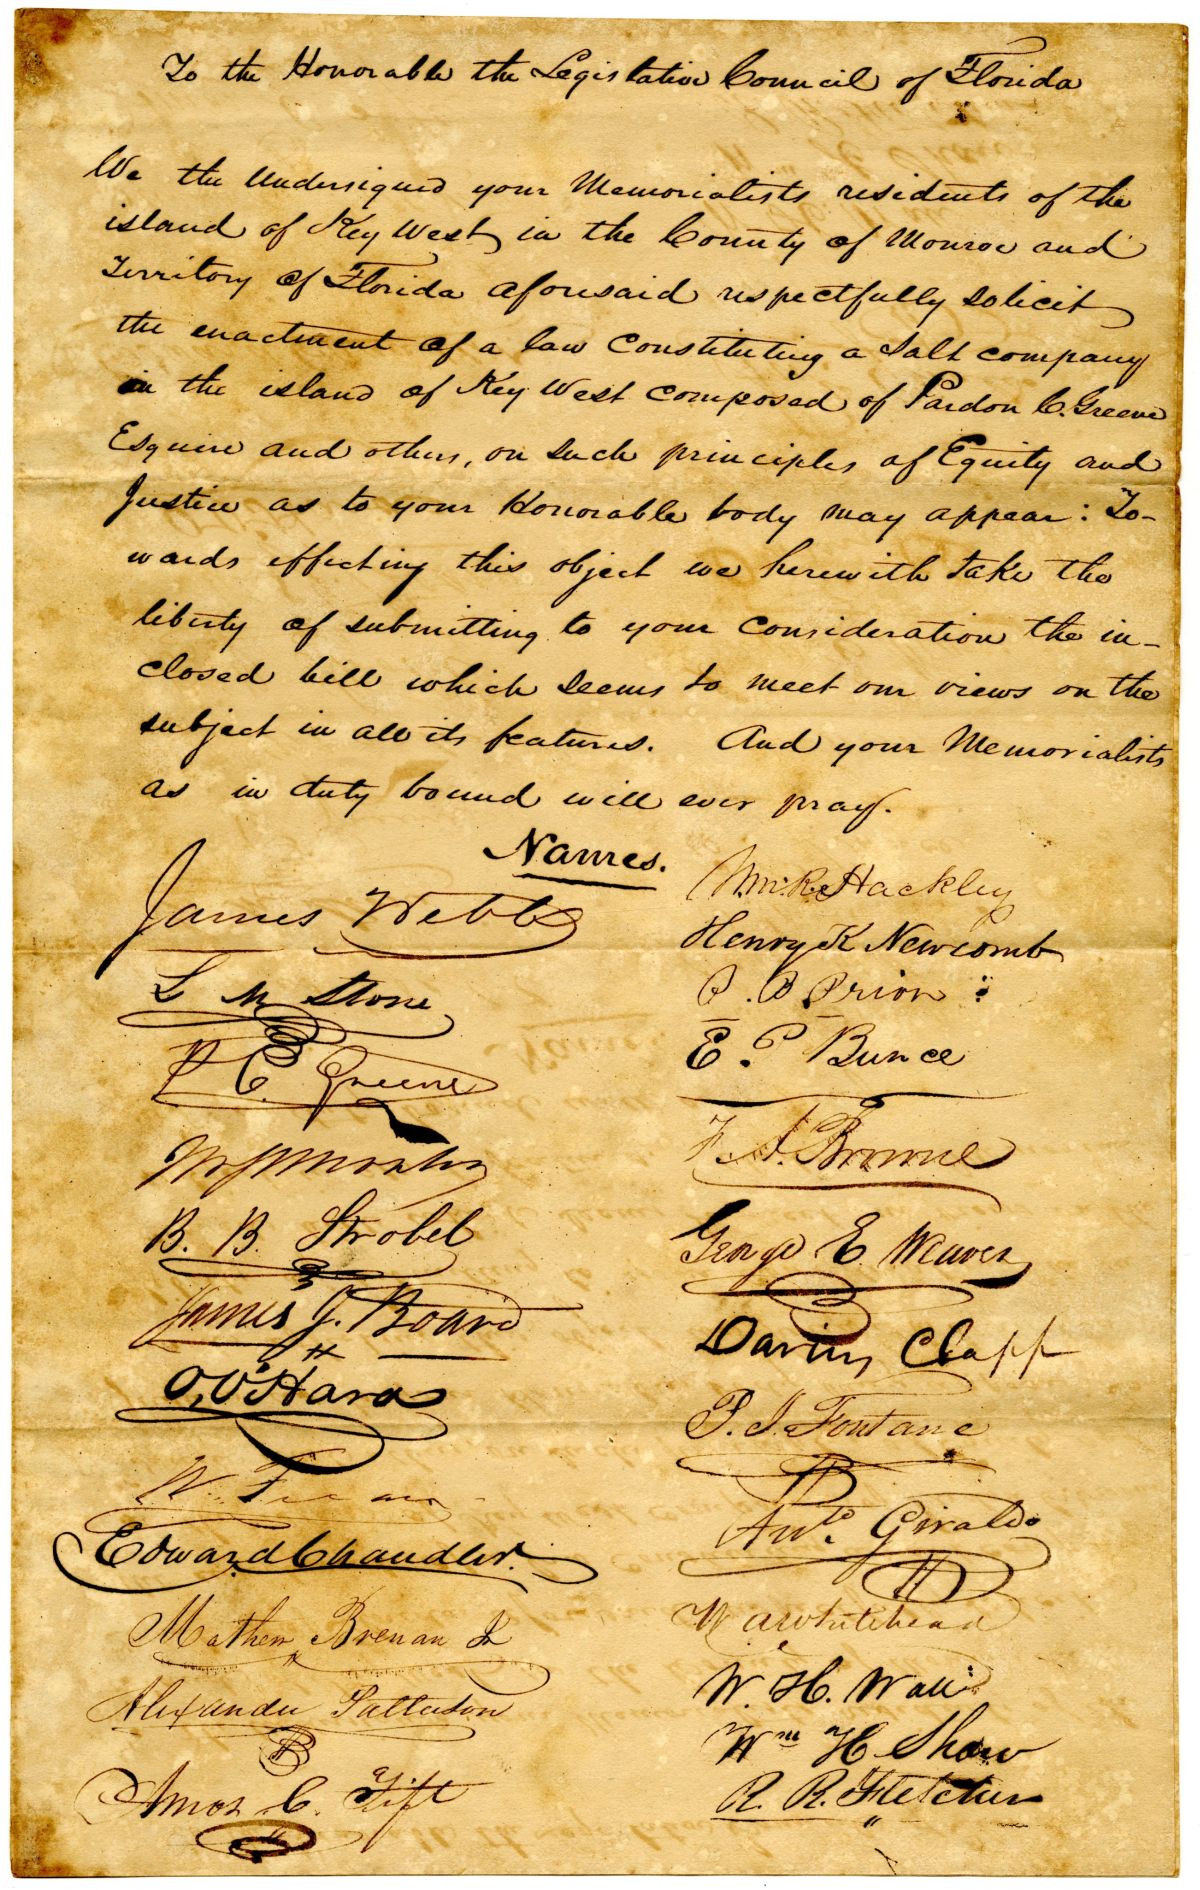 To the Honorable the Legislative Council of Florida
We the Undersigned your Memorialists residents of the
island of Key West in the County of Monroe and
Territory of Florida aforesaid respectfully solicit
the enactment of a law Constituting a Salt company
in the island of Key West composed of Pardon C. Greene
Esquire and others, on such principles of Equity and
Justice as to your Honorable body may appear: To-
wards effecting this object we herewith take the
liberty of submitting to your Consideration the in-
closed bill which seems to meet our views on the
subject in all its features. And your Memorialists
as in duty bound will ever pray.
Names.
James Webb
L M Stone
P C. Greene
B. B. Strobel
James J. Board
O. O'Hara
W.
Edward Chandler.
Mathew Brenan Jr
Alexander Patterson
Amos C. Tift
Wm. R. Hackley
Henry K Newcomb
P. B. Prior
E. P Bunce
F. A. Browne
George E. Weaver
Darius Clapp
P. J. Fontane
Anto. Giraldo
W A Whitehead
W. H. Wall
Wm H Shaw
R. R. Fletcher